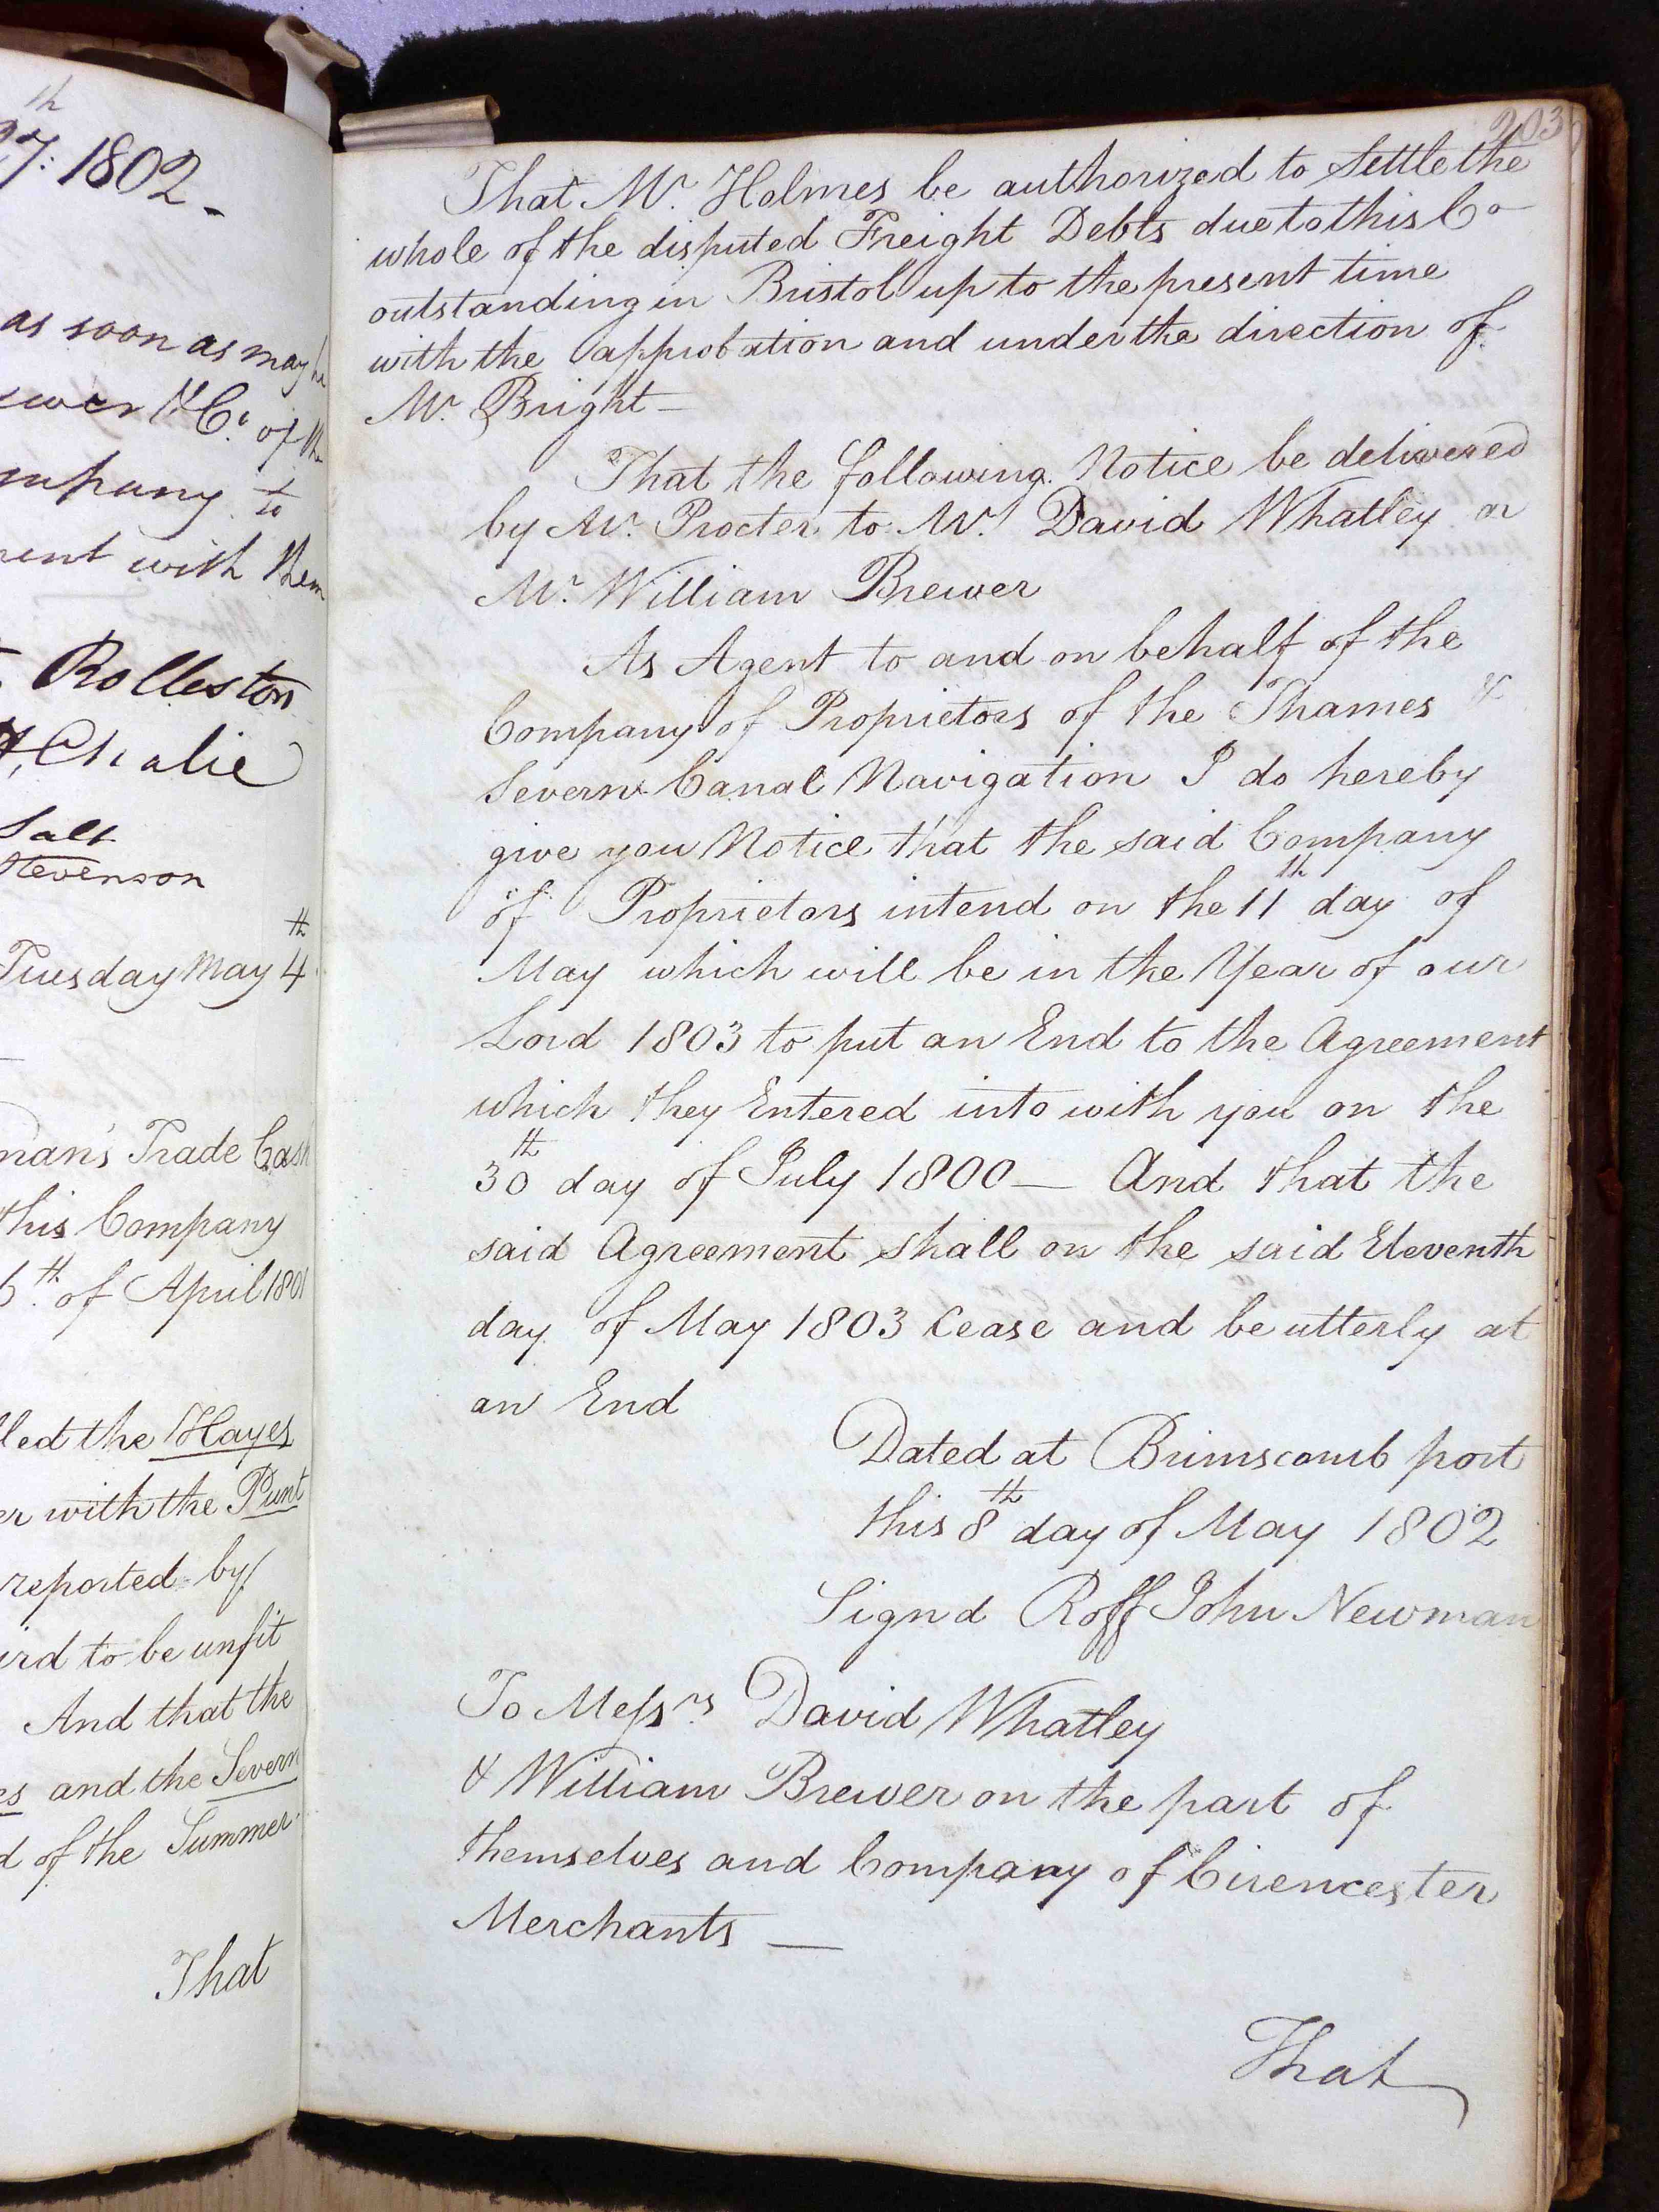 th
27: 1802.
as soon as may be
& Co. of the
to
with them
Rolleston
Chalie
Salt
Stevenson
Tuesday May 4th
Trade Cash
this Company
6th of April 1801
the Hayes
with the Punt
reported by
to be unfit
And that the
and the Severn
of the Summer
That
203
That Mr. Holmes be authorized to Settle the
whole of the disputed Freight Debts due to this Co
outstanding in Bristol up to the present time
with the approbation and under the direction of
Mr. Bright —
That the following Notice be delivered
by Mr. Procter to Mr. David Whatley or
Mr. William Brewer
As Agent to and on behalf of the
Company of Proprietors of the Thames &
Severn Canal Navigation I do hereby
give you Notice that the said Company
of Proprietors intend on the 11th day of
May which will be in the Year of our
Lord 1803 to put an End to the Agreement
which they Entered into with you on the
30th day of July 1800 — And that the
said Agreement shall on the said Eleventh
day of May 1803 Cease and be utterly at
an End
Dated at Brimscomb port
this 8th day of May 1802
Signd Roff John Newman
To Messrs. David Whatley
& William Brewer on the part of
themselves and Company of Cirencester
Merchants —
That